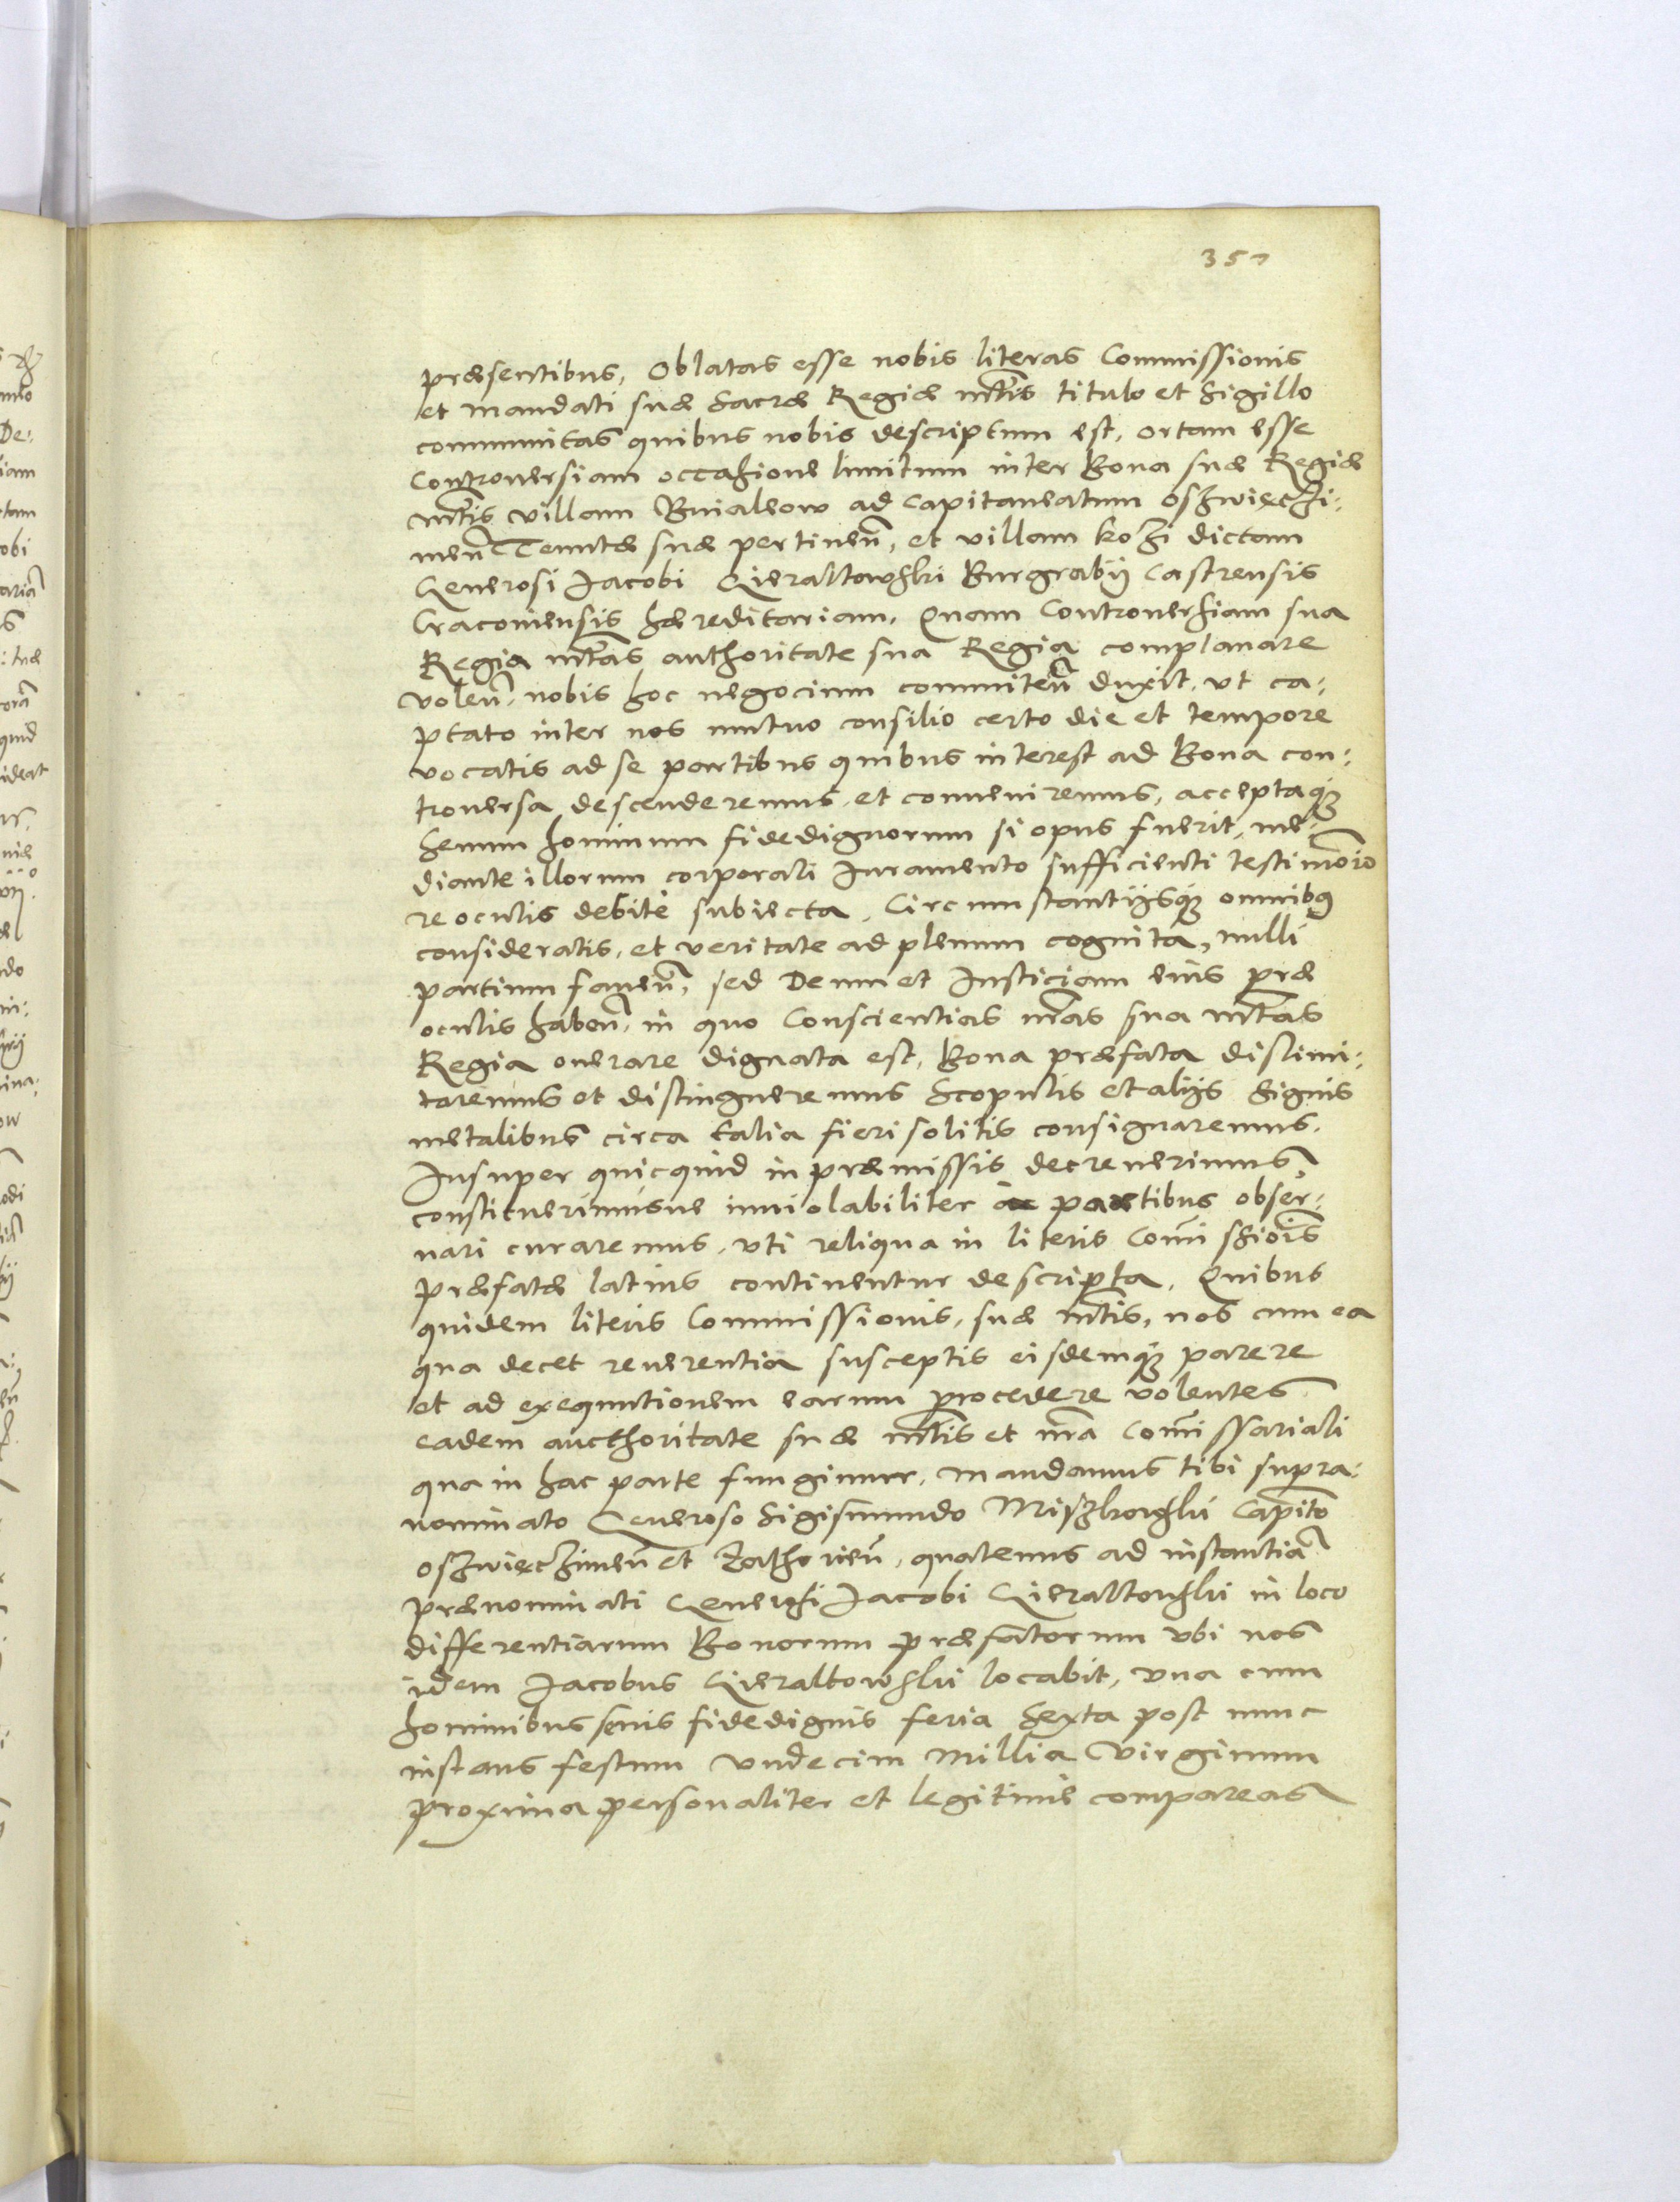 357
præsentibus, Oblatas esse nobis literas Commissionis
et mandati suæ Sacræ Regiæ mtis titulo et Sigillo
communitas quibus nobis descriptum est, ortam esse
Controuersiam occasione limitum inter Bona suæ Regiæ
mtis villam Buiakow ad Capitaneatum Oszwieczi:
men Tenutæ suæ pertinen, et villam Kozi dictam
Generosi Jacobi Gieraltowski Burgrabij Castrensis
Cracouiensis hæreditariam. Quam Controuersiam sua
Regia mtas authoritate sua Regia complanare
volen, nobis hoc negocium commiten duxit, vt ca:
ptato inter nos mutuo consilio certo die et tempore
vocatis ad se partibus quibus interest ad Bona con:
trouersa descenderemus, et conueniremus, acceptaque
Senum hominum fidedignorum si opus fuerit, me:
diante illorum corporali Juramento sufficienti testimoio
re oculis debite subiecta, Circumstantijsque omnibus
consideratis, et veritate ad plenum cognita, nulli
partium fauen, sed Deum et Justiciam eius præ
oculis haben, in quo Conscientias nras sua mtas
Regia onerare dignata est, Bona præfata dislimi:
taremus et distingueremus Scopulis et alijs Signis
metalibus circa talia fieri solitis consignaremus.
Insuper quicquid in præmissis decreuerimus,
constituerimusue inuiolabiliter a partibus obser:
uari curaremus, vti reliqua in literis Comi ssiois
præfatæ latius continentur descripta, Quibus
quidem literis Commissionis, suæ mtis, nos cum ea
qua decet reuerentia susceptis eisdemque parere
et ad exequutionem earum procedere volentes
eadem aucthoritate suæ mtis et nra Comissariali
qua in hac parte fungimur, mandamus tibi supra:
nominato Generoso Sigismundo Miszkowski Capito
Oszwieczimen et Zathorien, quatenus ad instantia
prænominati Generosi Jacobi Gieraltowski in loco
differentiarum Bonorum præfatorum vbi nos
idem Jacobus Gieraltowski locabit, vna cum
hominibus senis fidedignis feria Sexta post nunc
instans festum Vndecim Millia Virginum
proxima personaliter et legitime compareas